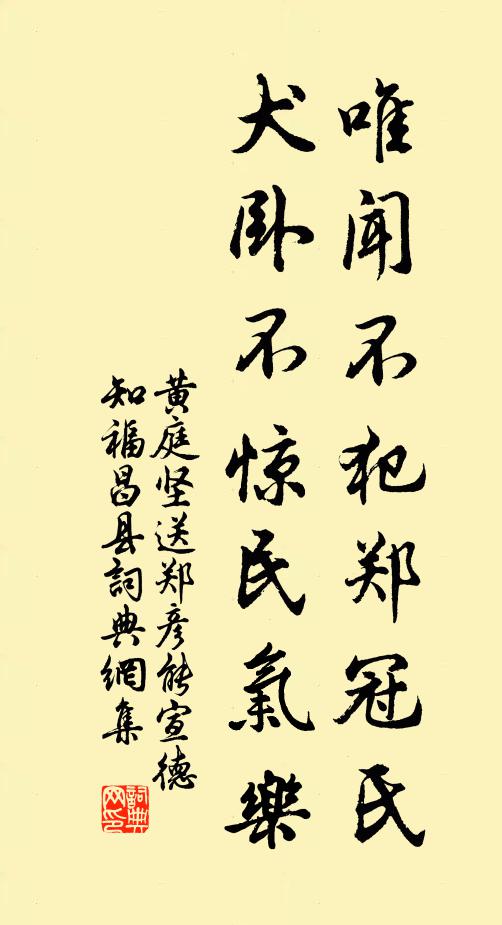 唯闻不犯郑冠氏
犬卧不惊民氣樂
黄庭坚送郑彦能宣德
知福昌县詞典網集
詞典网印